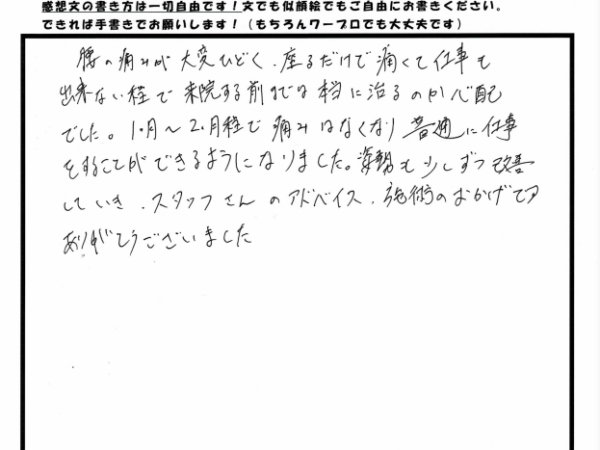 感想文の書き方は一切自由です！文でも似顔絵でもご自由にお書きください。
できれば手書きでお願いします！（もちろんワープロでも大丈夫です）
腰の痛みが大変ひどく、座るだけで痛くて仕事も
出来ない程で来院する前までは本当に治るのか心配
でした。1ヶ月～2ヶ月程で痛みはなくなり普通に仕事
をすることができるようになりました。姿勢も少しずつ改善
していき、スタッフさんのアドバイス、施術のおかげです
ありがとうございました